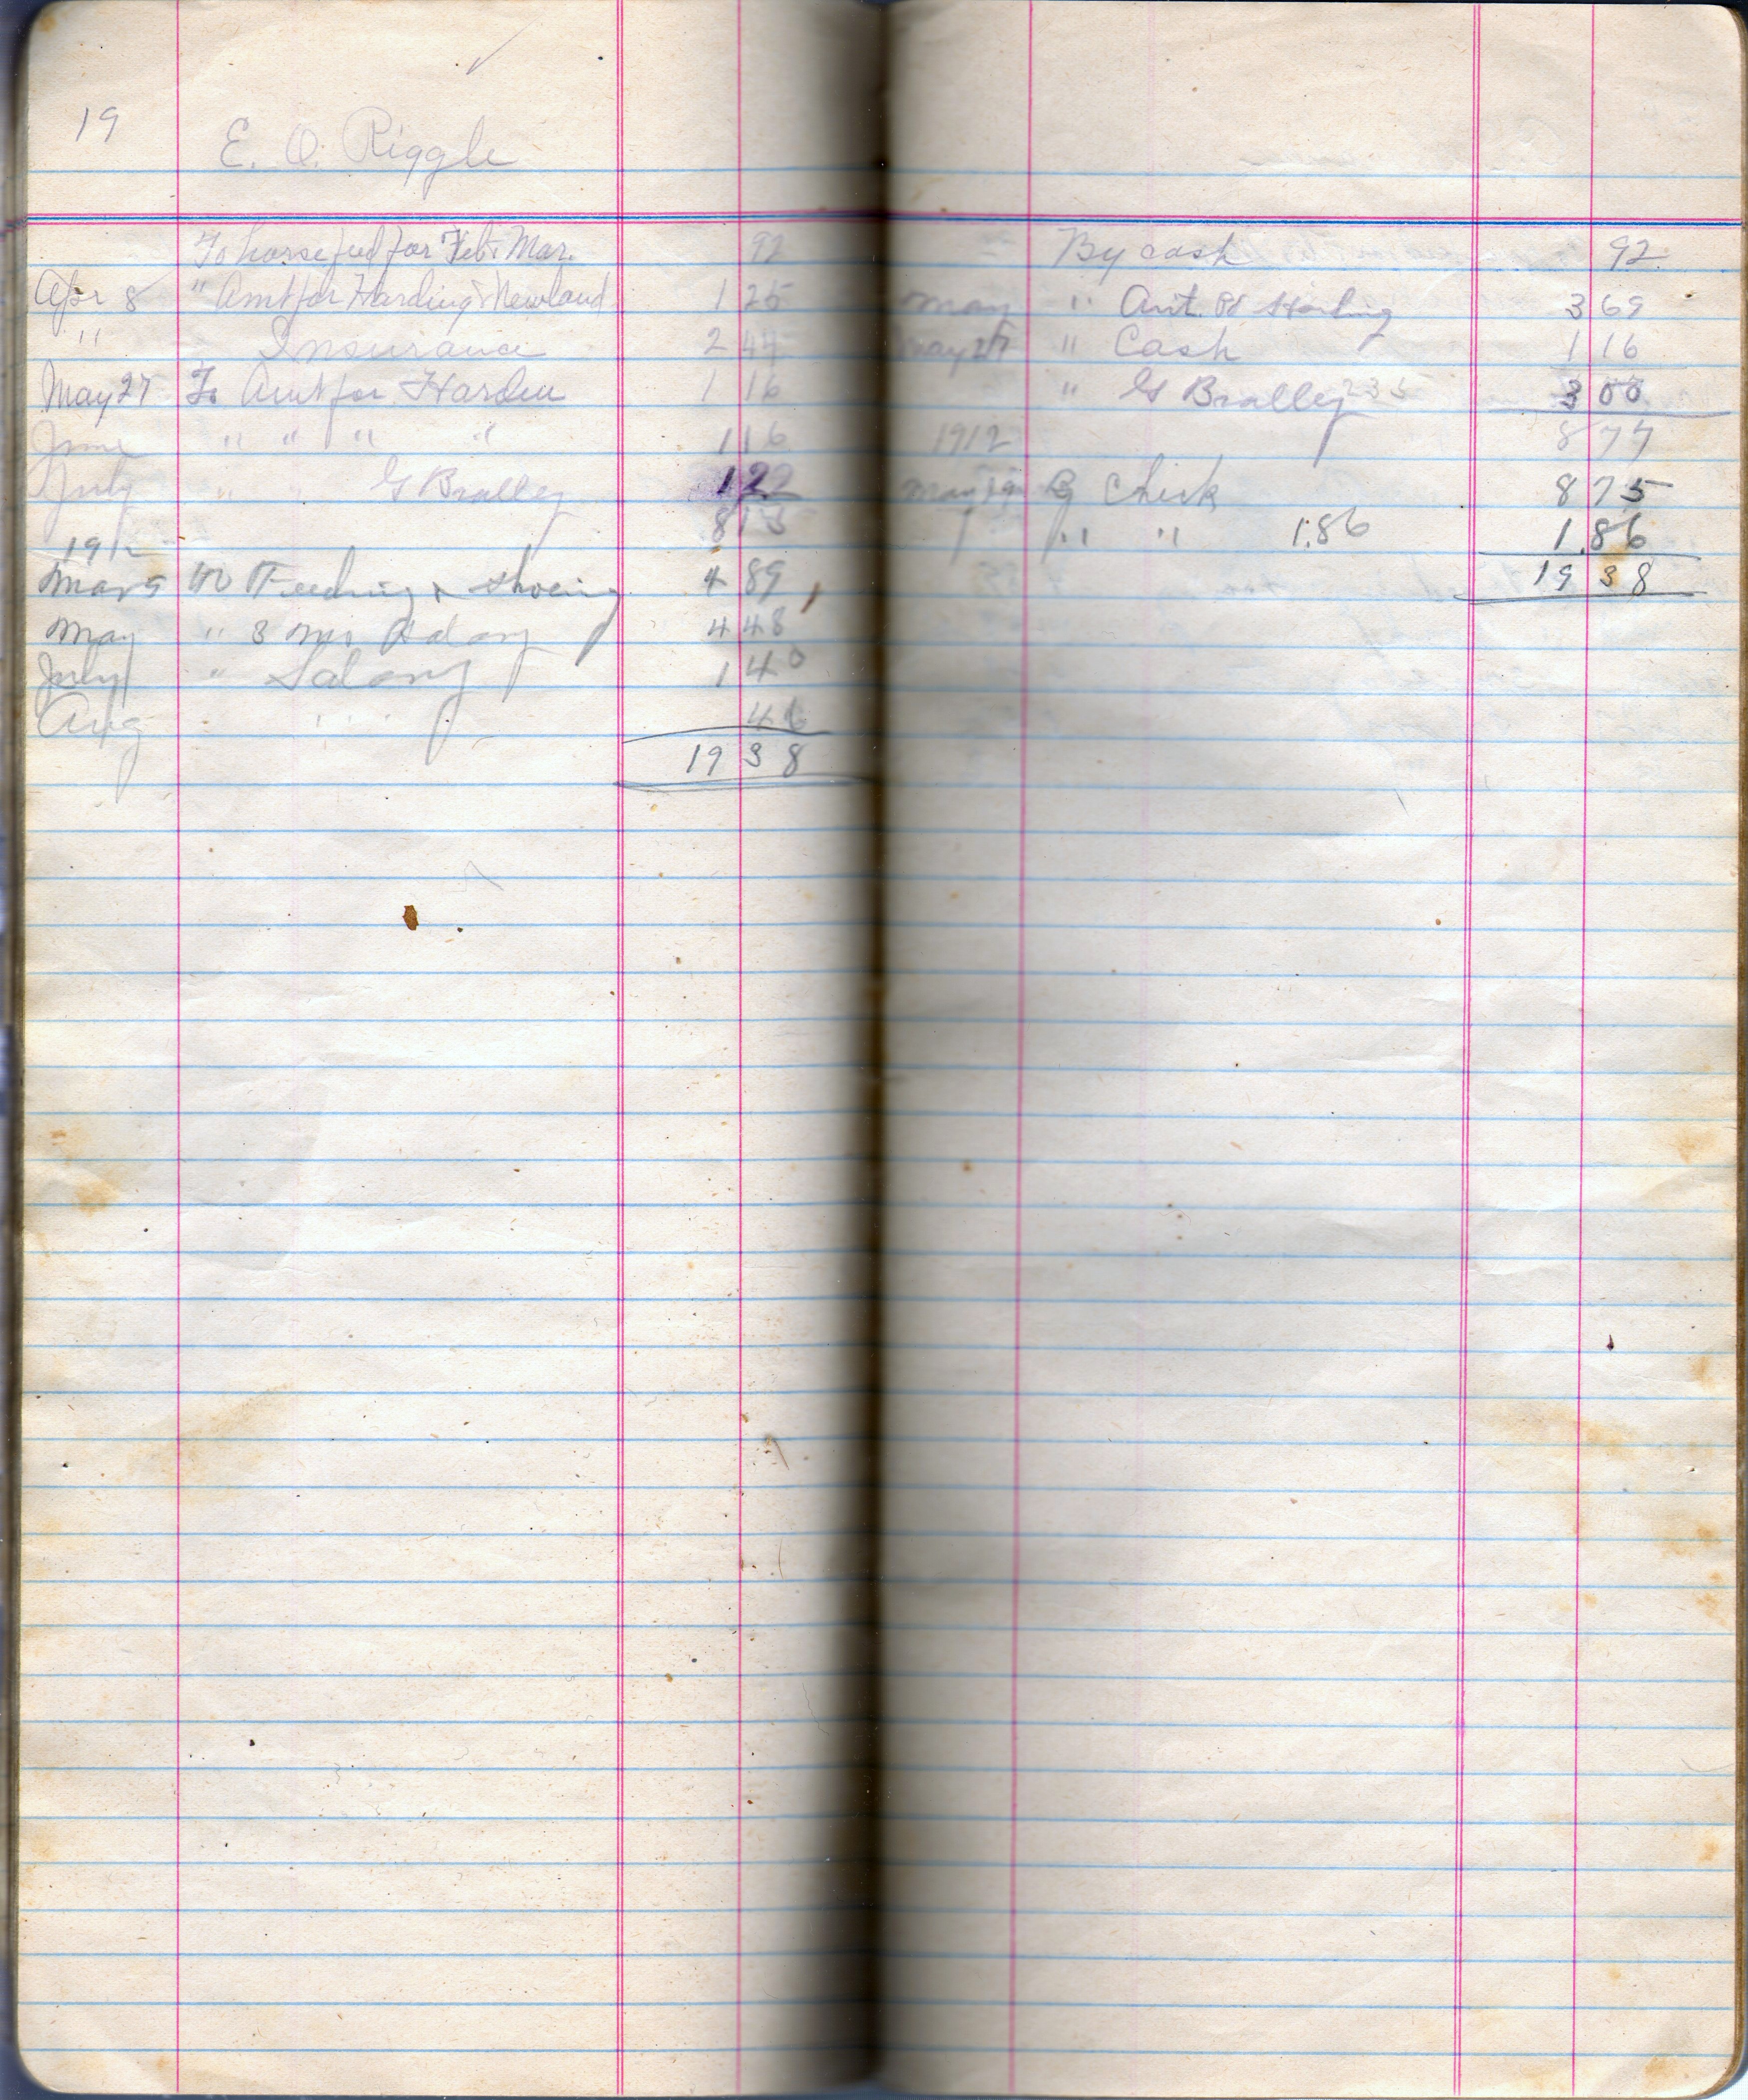 19 E. O. Riggle
To horse feed for Feb & Mar. 92
Apr 8 " Amt for Harding & Newland 1 25
" Insurance 2 44
May 27 To Amt for Harden 1 16
June " " " " 1 16
July " G Bralley 1 22
8 15
1912
Mar 9 to Feeding & Shoeing 4 89
May " 3 mo 4 48
July " Salary 1 40
Aug " 46
19 38
By cash 92
May " Amt. Harding 3 69
May 27 " Cash 1 16
" G Bralley 235 3 00
1912 8 77
Mar 19 By Check 8 75
" " 1.86 1.86
19 38